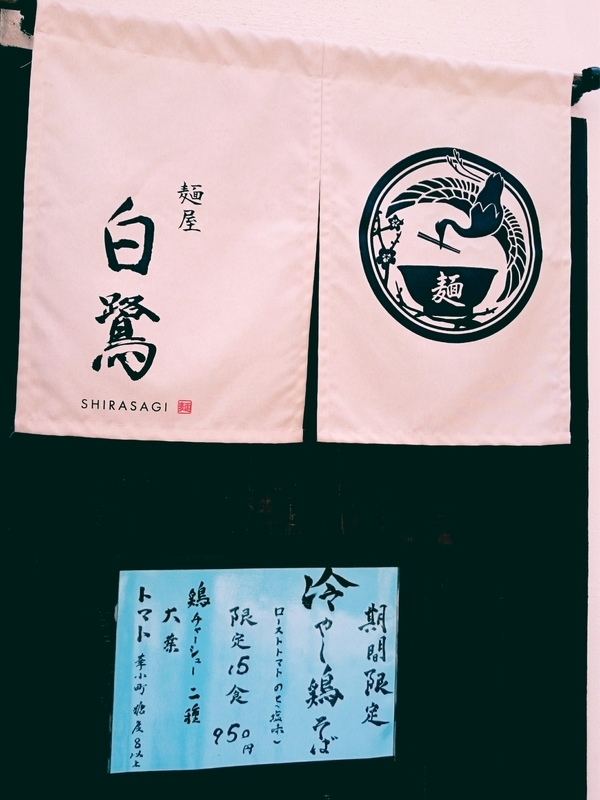 麺屋
白鷺
SHIRASAGI
麺
麺
期間限定
冷やし鶏そば
ローストトマトのせ(塩味)
限定15食
950円
鶏チャーシュー二種
大葉
トマト 華小町 糖度8以上